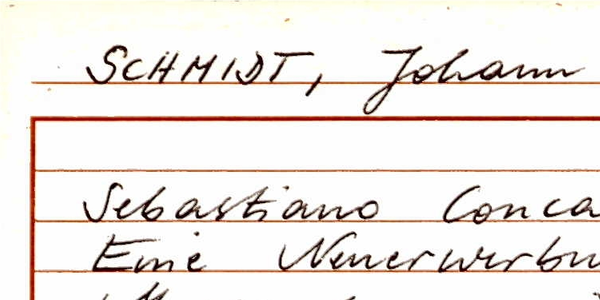 SCHMIDT, Johann
Sebastiano Conca
Eine Neuerwerbu